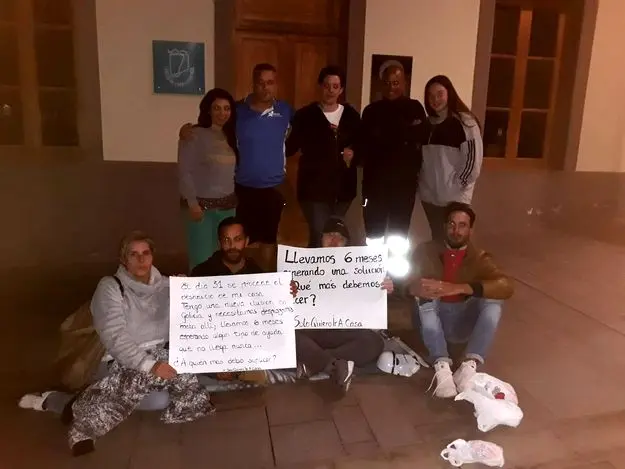 El día 31 se produce el
desahucio de mi casa.
Tengo una nueva ilusión en
Galicia y necesitamos desplazarnos
mañ allí; llevamos 6 meses
esperando algún tipo de ayuda
que no llega nunca...
¿A quién más debo acudir?
Llevamos 6 meses
esperando una solución
¿Qué más debemos
hacer?
Solo Quiero Ir A Casa